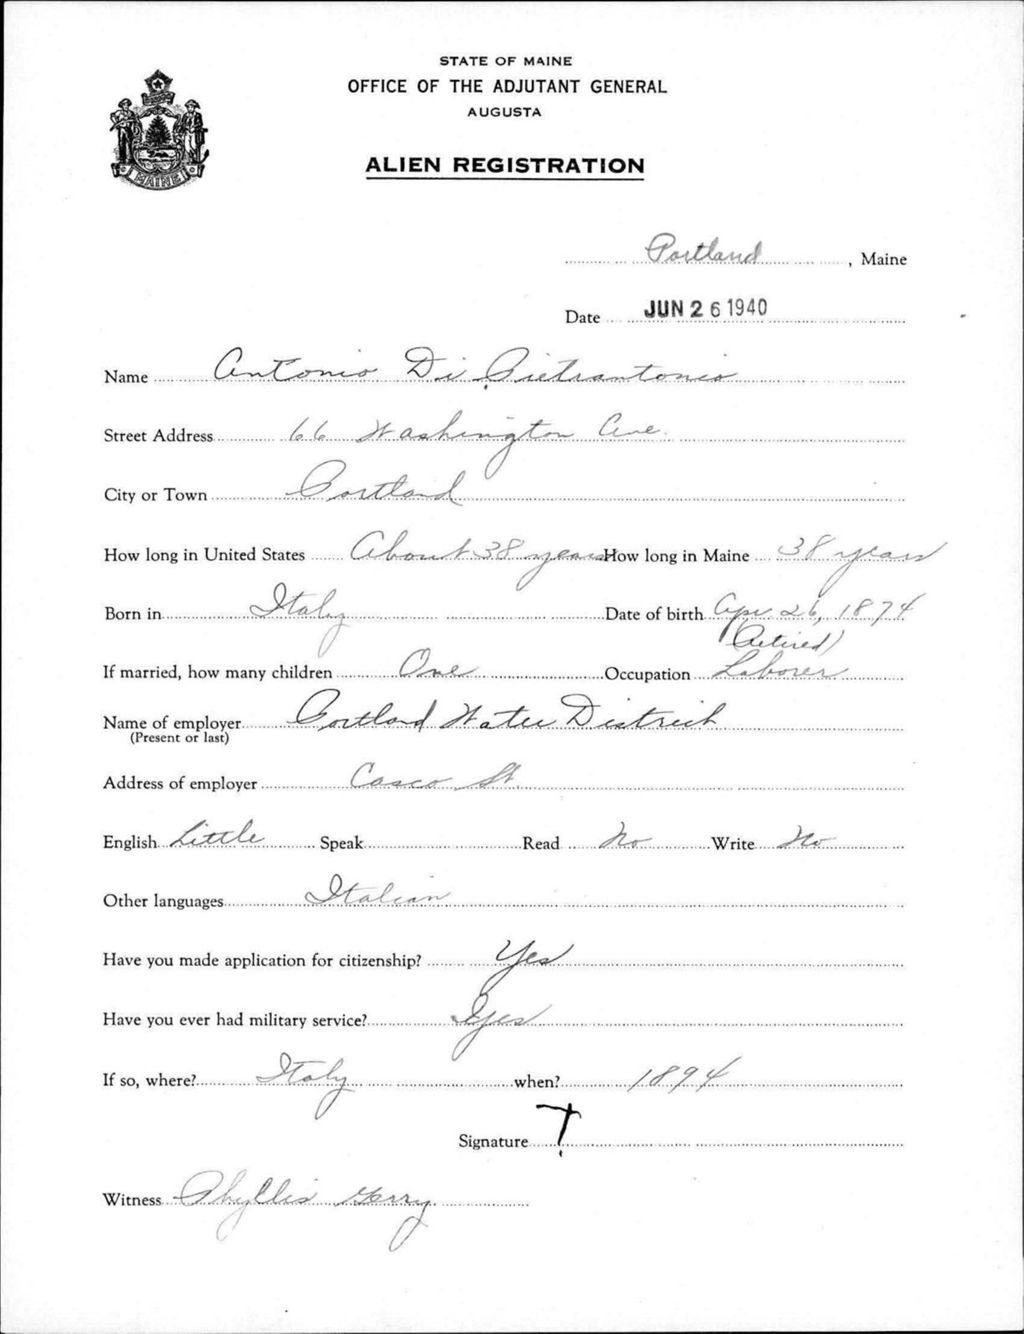 STATE OF MAINE
OFFICE OF THE ADJUTANT GENERAL
AUGUSTA
ALIEN REGISTRATION
MAINE
Portland, Maine
Date JUN 26 1940
Name Antonio Di Pietrantonio
Street Address 66 Washington Ave.
City or Town Portland
How long in United States About 38 years How long in Maine 38 years
Born in Italy Date of birth Apr. 26, 1874
(Retired)
If married, how many children One Occupation Laborer
Name of employer Portland Water District
(Present or last)
Address of employer Casco St.
English Little Speak Read No Write No
Other languages Italian
Have you made application for citizenship? Yes
Have you ever had military service? Yes
If so, where? Italy when? 1894
Signature
Witness Phyllis Gerry